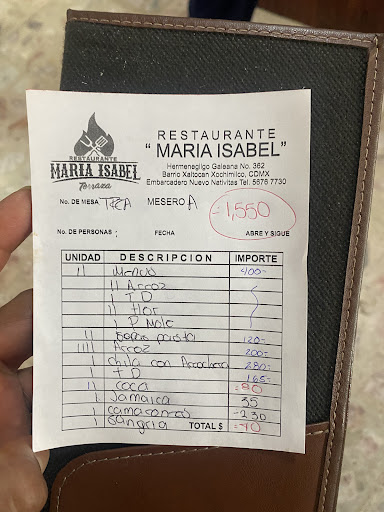 RESTAURANTE
MARIA ISABEL
Terraza
RESTAURANTE
" MARIA ISABEL"
Hermenegilgo Galeana No. 362
Barrio Xaltocan Xochimilco, CDMX
Embarcadero Nuevo Nativitas Tel. 5676 7730
No. DE MESA MESERO A 1,550
No. DE PERSONAS : FECHA ABRE Y SIGUE
UNIDAD DESCRIPCION IMPORTE
11 Menus 400-
11 Arroz
1 T D
11 flor
1 P Mole
11 pasta 120-
1111 Arroz 200-
1 chila con Arrachera 280-
1 T D 165-
11 coca 80
1 Jamaica 35
1 230
1 Sangria TOTAL $ 40